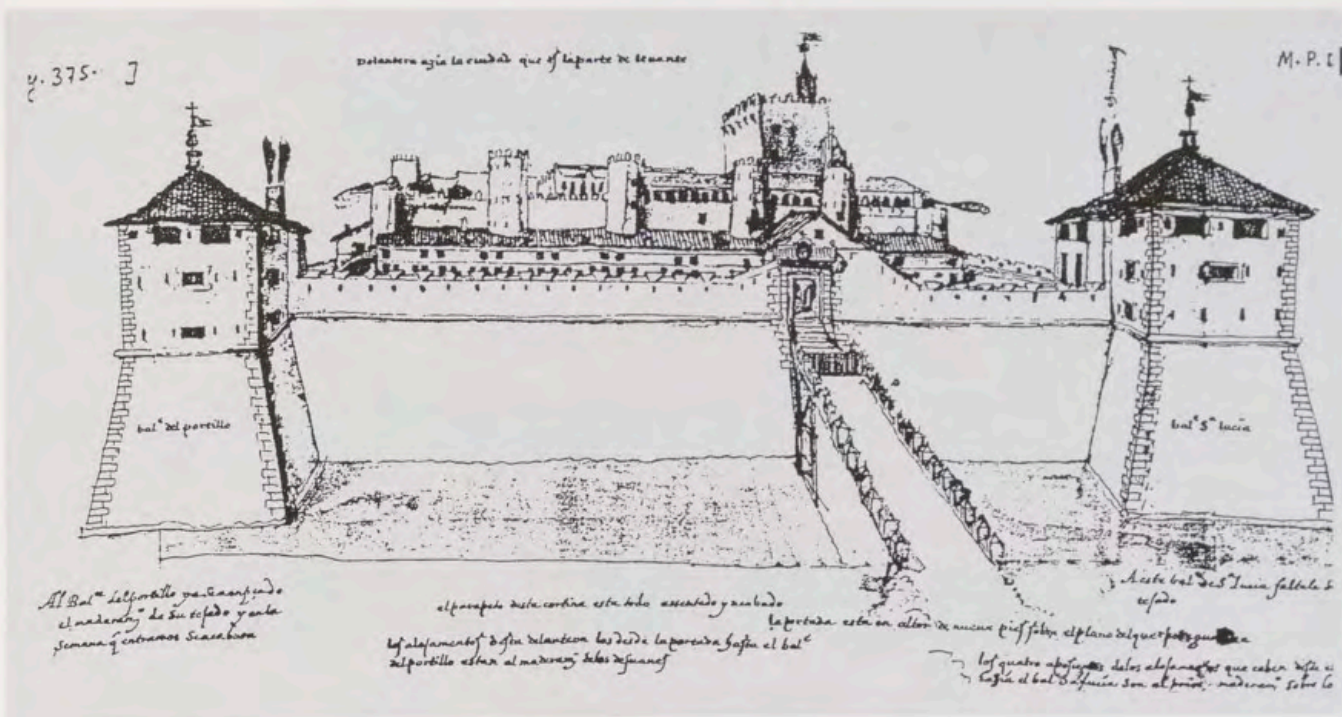 y. 375. J
Delantera azia la ciudad que es la parte de levante
M. P. I
bal.te del portillo
bal.te S.ta lucia
Al Bal.te del portillo ya se a
el maderam.to de su tejado y en la
semana q entramos se acabara
el parapeto desta cortina esta todo assentado y acabado
los alojamentos desta delantera los desde la portada hasta el bal.te
del portillo estan al maderam.to de los desuanes
la portada esta en altor de nueue pies sobre el plano del
A este bal.te de S.ta Lucia faltale
tejado
los quatro de los que caben
el bal.te S.ta lucia son al maderam.to sobre lo